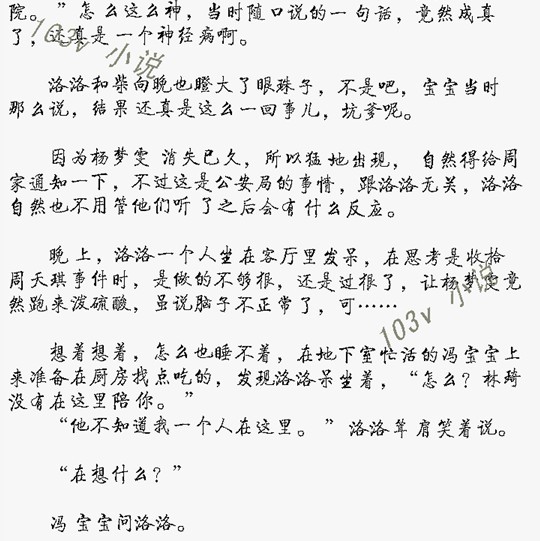 院。”怎么这么神，当时随口说的一句话，竟然成真
了，还真是一个神经病啊。
洛洛和柴向晚也瞪大了眼珠子，不是吧，宝宝当时
那么说，结果还真是这么一回事儿，坑爹呢。
因为杨梦雯 消失已久，所以猛地出现， 自然得给周
家通知一下，不过这是公安局的事情，跟洛洛无关，洛洛
自然也不用管他们听了之后会有什么反应。
晚上，洛洛一个人坐在客厅里发呆，在思考是收拾
周天琪事件时，是做的不够狠，还是过狠了，让杨梦雯竟
然跑来泼硫酸，虽说脑子不正常了，可……
想着想着，怎么也睡不着，在地下室忙活的冯宝宝上
来准备在厨房找点吃的，发现洛洛呆坐着，“怎么？林琦
没有在这里陪你。”
“他不知道我一个人在这里。” 洛洛耸肩笑着说。
“在想什么？”
冯宝宝问洛洛。
103v 小说
103v 小说